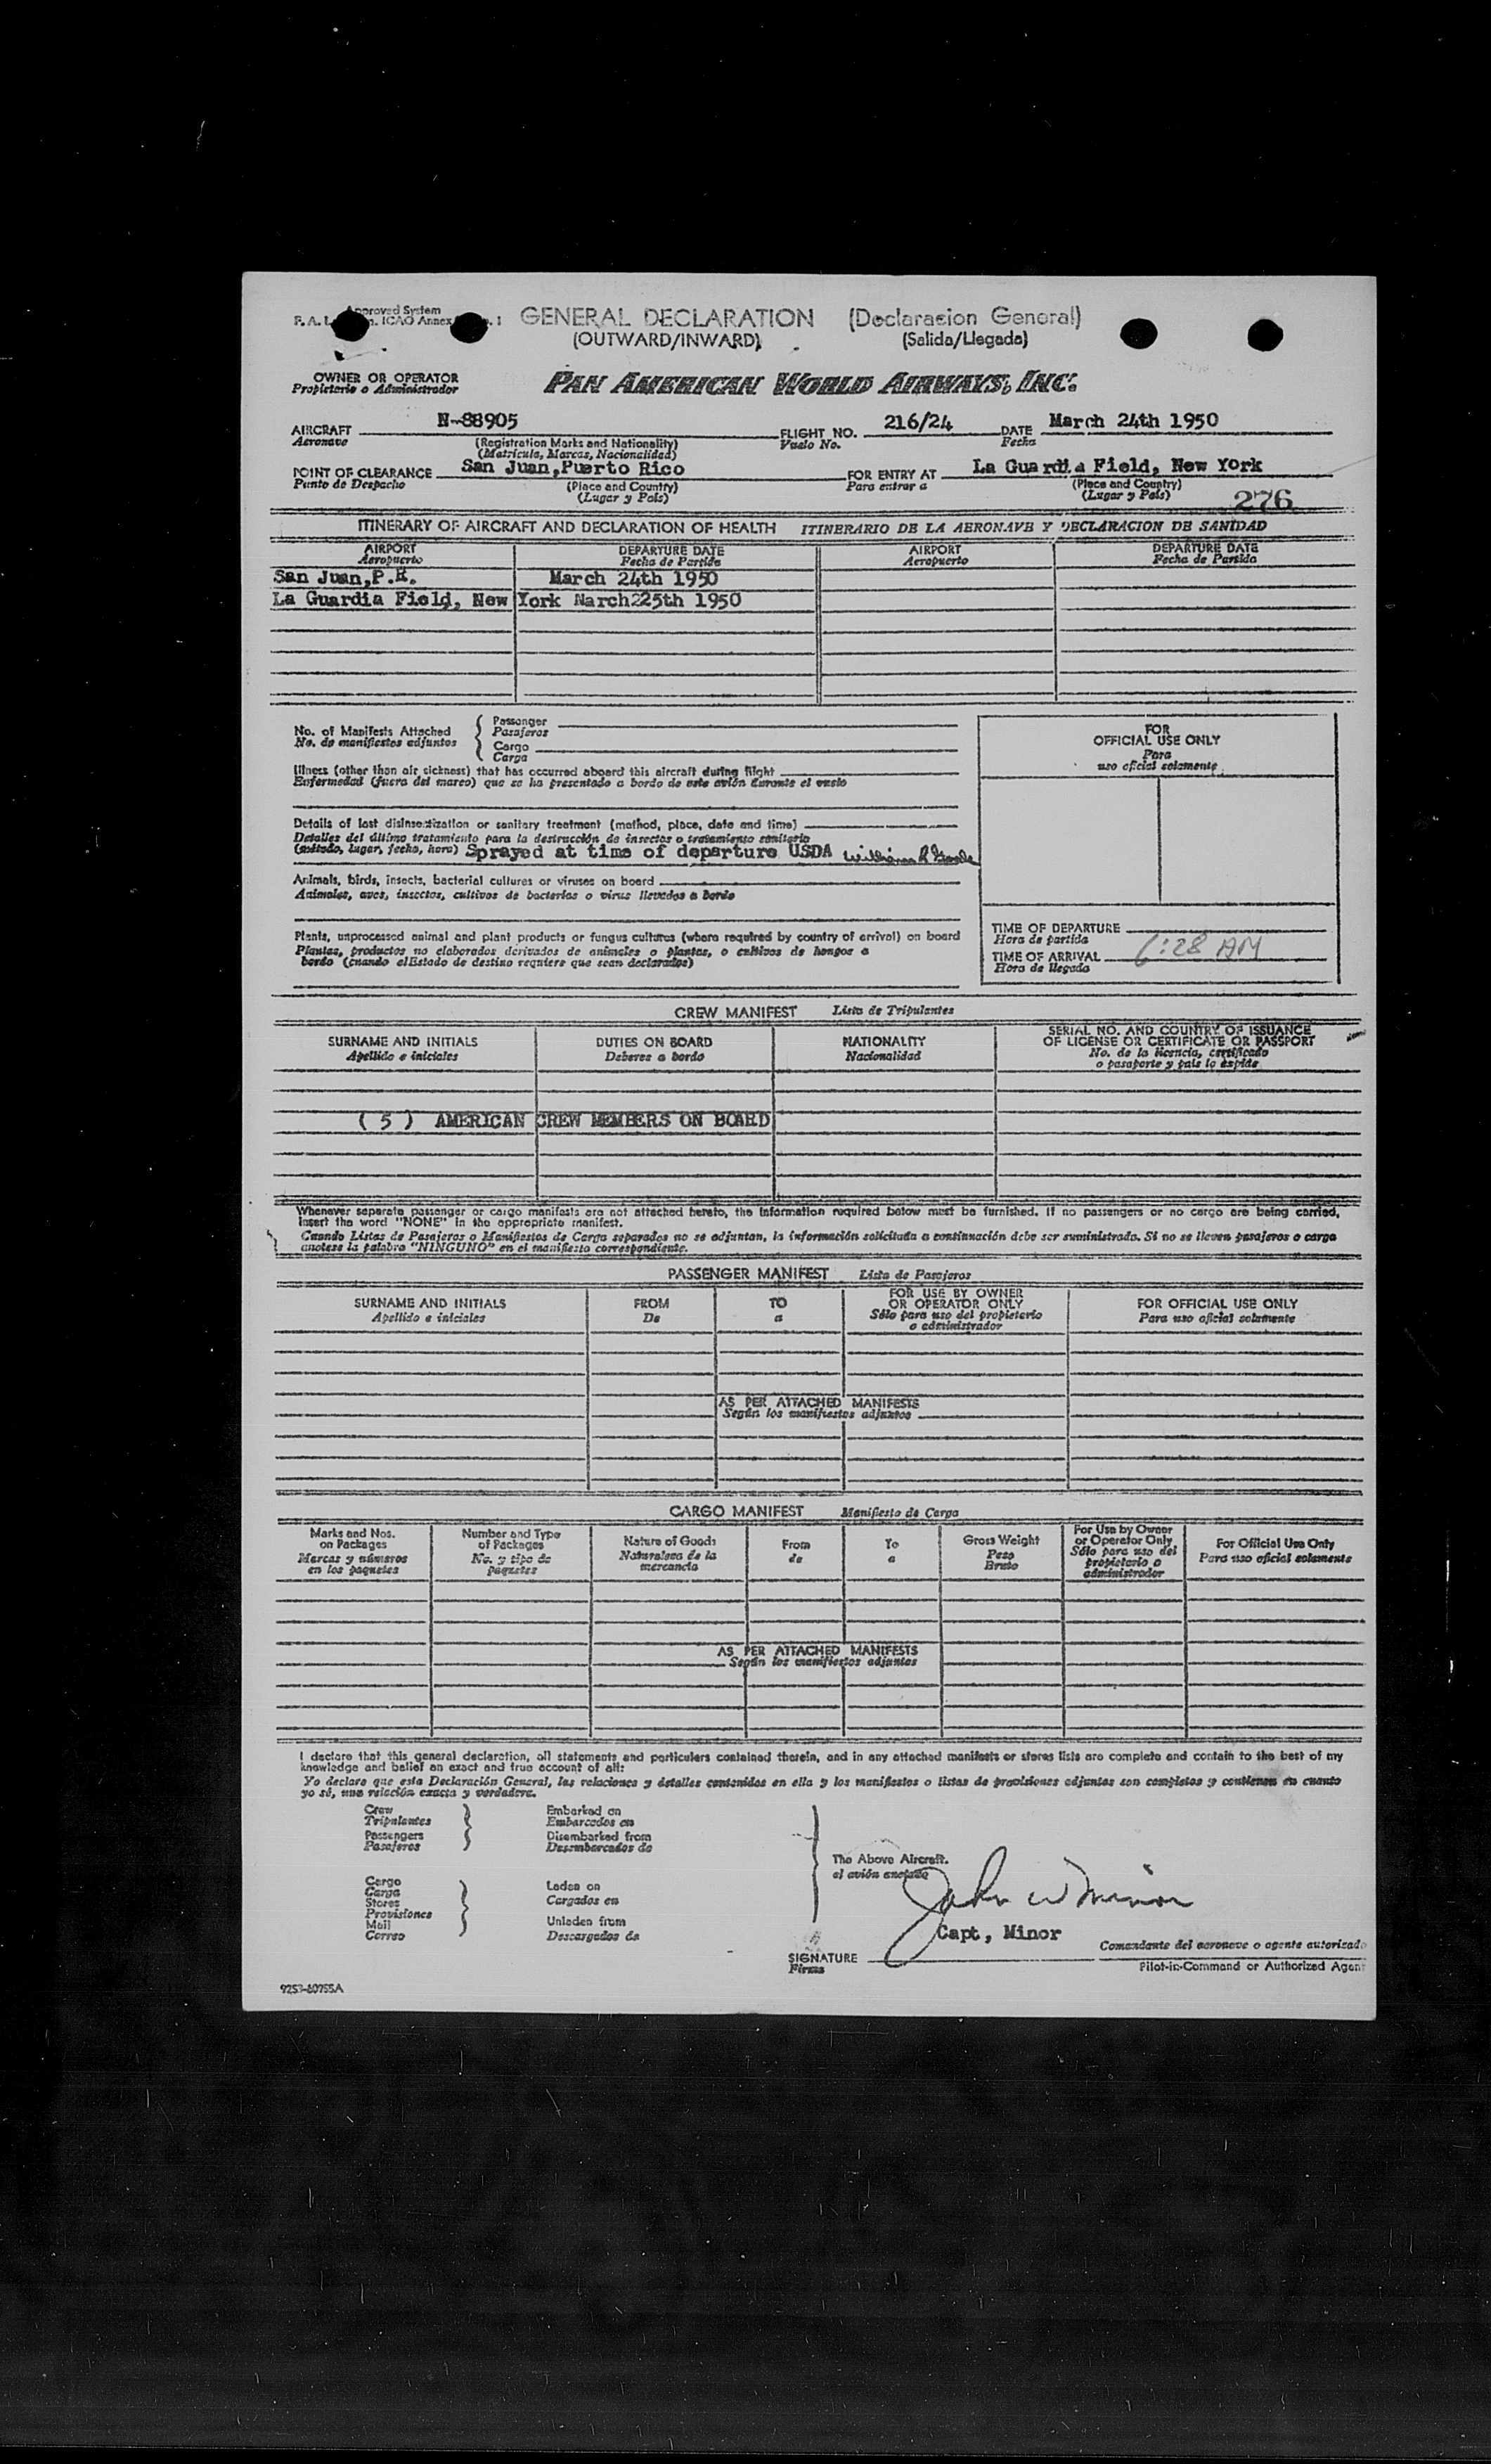 Approved System
GENERAL DECLARATION (Declaracion General)
(OUTWARD/INWARD) (Salida/Llegada)
OWNER OR OPERATOR
Propietario o Administrador
PAN AMERICAN WORLD AIRWAYS, INC.
AIRCRAFT N-88905 FLIGHT NO. 216/24 DATE March 24th 1950
Aeronave (Registration Marks and Nationality) Vuelo No. Fecha
(Matricula, Marcas, Nacionalidad)
POINT OF CLEARANCE San Juan,Puerto Rico FOR ENTRY AT La Guardia Field, New York
Punto de Despacho (Place and Country) Para entrar a (Place and Country)
(Lugar y País) (Lugar y País) 276
ITINERARY OF AIRCRAFT AND DECLARATION OF HEALTH ITINERARIO DE LA AERONAVE Y DECLARACION DE SANIDAD
AIRPORT DEPARTURE DATE AIRPORT DEPARTURE DATE
Aeropuerto Fecha de Partida Aeropuerto Fecha de Partida
San Juan,P.R. March 24th 1950
La Guardia Field, New York March225th 1950
No. of Manifests Attached
No. de manifiestos adjuntos
Passenger
Pasajeros
Cargo
Carga
FOR
OFFICIAL USE ONLY
Para
uso oficial solamente
Illness (other than air sickness) that has occurred aboard this aircraft during flight
Enfermedad (fuera del mareo) que se ha presentado a bordo de este avión durante el vuelo
Details of last disinsectization or sanitary treatment (method, place, date and time)
Detalles del último tratamiento para la destrucción de insectos o tratamiento sanitario
(método, lugar, fecha, hora) Sprayed at time of departure USDA William R
Animals, birds, insects, bacterial cultures or viruses on board
Animales, aves, insectos, cultivos de bacterias o virus llevados a bordo
Plants, unprocessed animal and plant products or fungus cultures (where required by country of arrival) on board
Plantas, productos no elaborados derivados de animales o plantas, o cultivos de hongos a
bordo (cuando elEstado de destino requiere que sean declarados)
TIME OF DEPARTURE
Hora de partida
TIME OF ARRIVAL 6:28 AM
Hora de llegada
CREW MANIFEST Lista de Tripulantes
SURNAME AND INITIALS DUTIES ON BOARD NATIONALITY SERIAL NO. AND COUNTRY OF ISSUANCE
OF LICENSE OR CERTIFICATE OR PASSPORT
Apellido e iniciales Deberes a bordo Nacionalidad No. de la licencia, certificado
o pasaporte y país lo expide
( 5 ) AMERICAN CREW MEMBERS ON BOARD
Whenever separate passenger or cargo manifests are not attached hereto, the information required below must be furnished. If no passengers or no cargo are being carried,
insert the word "NONE" in the appropriate manifest.
Cuando Listas de Pasajeros o Manifiestos de Carga separados no se adjuntan, la información solicitada a continuación debe ser suministrada. Si no se llevan pasajeros o carga
anotese la palabra "NINGUNO" en el manifiesto correspondiente.
PASSENGER MANIFEST Lista de Pasajeros
SURNAME AND INITIALS FROM TO FOR USE BY OWNER
OR OPERATOR ONLY FOR OFFICIAL USE ONLY
Apellido e iniciales De a Sólo para uso del propietario
o administrador Para uso oficial solamente
AS PER ATTACHED MANIFESTS
Según los manifiestos adjuntos
CARGO MANIFEST Manifiesto de Carga
Marks and Nos.
on Packages
Marcas y números
en los paquetes
Number and Type
of Packages
No. y tipo de
paquetes
Nature of Goods
Naturaleza de la
mercancia
From
de
To
a
Gross Weight
Peso
Bruto
For Use by Owner
or Operator Only
Sólo para uso del
propietario o
administrador
For Official Use Only
Para uso oficial solamente
AS PER ATTACHED MANIFESTS
Según los manifiestos adjuntos
I declare that this general declaration, all statements and particulars contained therein, and in any attached manifests or stores lists are complete and contain to the best of my
knowledge and belief an exact and true account of all:
Yo declaro que esta Declaración General, las relaciones y detalles contenidos en ella y los manifiestos o listas de provisiones adjuntas son completos y contienen en cuanto
yo sé, una relación exacta y verdadera.
Crew
Tripulantes
Passengers
Pasajeros
Embarked on
Embarcados en
Disembarked from
Desembarcados de
Cargo
Carga
Stores
Provisiones
Mail
Correo
Laden on
Cargados en
Unladen from
Descargados de
The Above Aircraft.
el avión anotado
John W Minor
Capt, Minor
SIGNATURE
Firma
Comandante del aeronave o agente autorizado
Pilot-in-Command or Authorized Agent